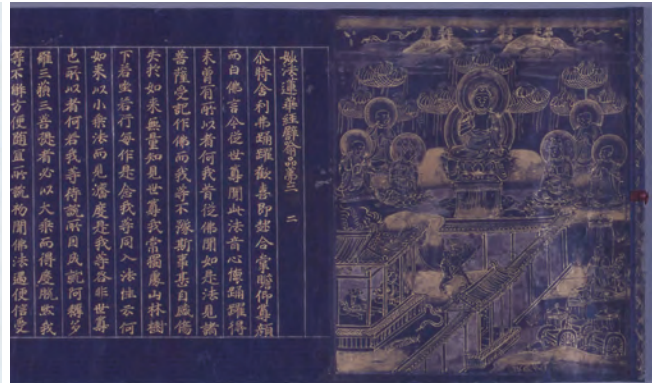 妙法蓮華經譬喻品第三 二
尒時舍利弗踊躍歡喜即起合掌瞻仰尊顏
而白佛言今從世尊聞此法音心懷踊躍得
未曾有所以者何我昔從佛聞如是法見諸
菩薩受記作佛而我等不豫斯事甚自感傷
失於如來無量知見世尊我常獨處山林樹
下若坐若行每作是念我等同入法性云何
如來以小乘法而見濟度是我等咎非世尊
也所以者何若我等待說所因成就阿耨多
羅三藐三菩提者必以大乘而得度脫然我
等不解方便隨宜所說初聞佛法遇便信受